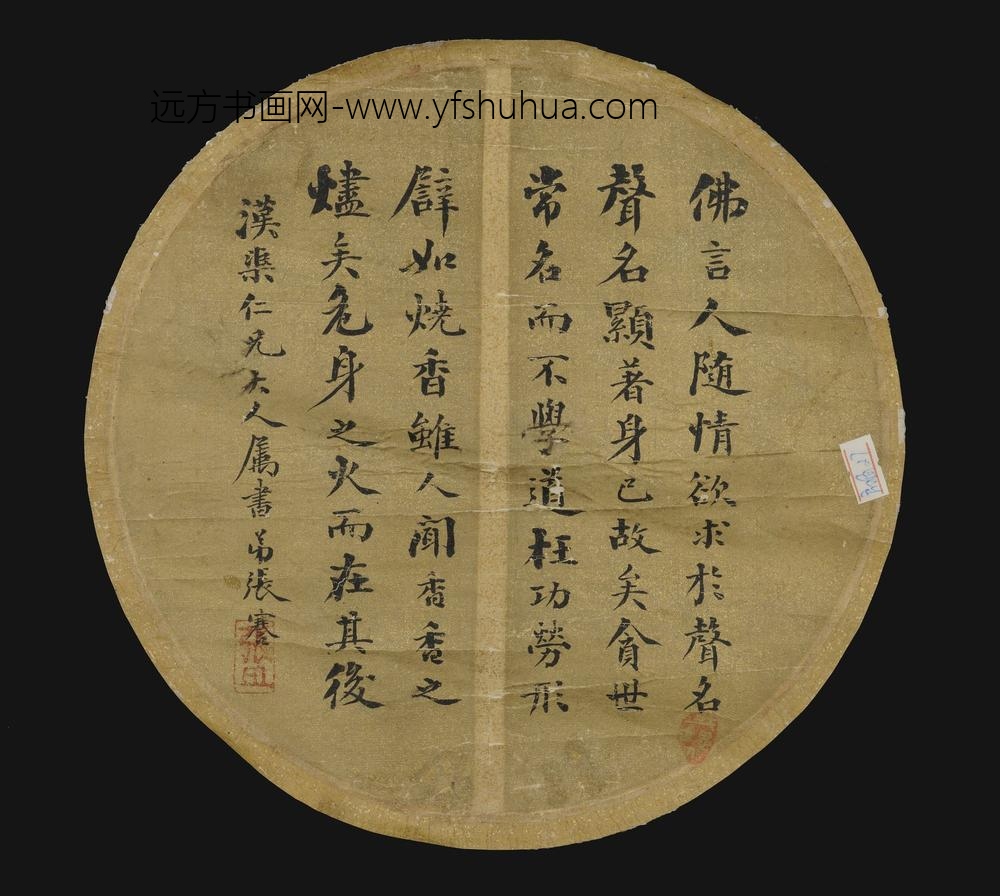 远方书画网-www.yfshuhua.com
佛言人随情欲求於聲名
聲名顯著身已故矣貪世
常名而不學道枉功勞形
譬如燒香雖人聞香香之
燼矣危身之火而在其後
漢渠仁兄大人属書弟張謇